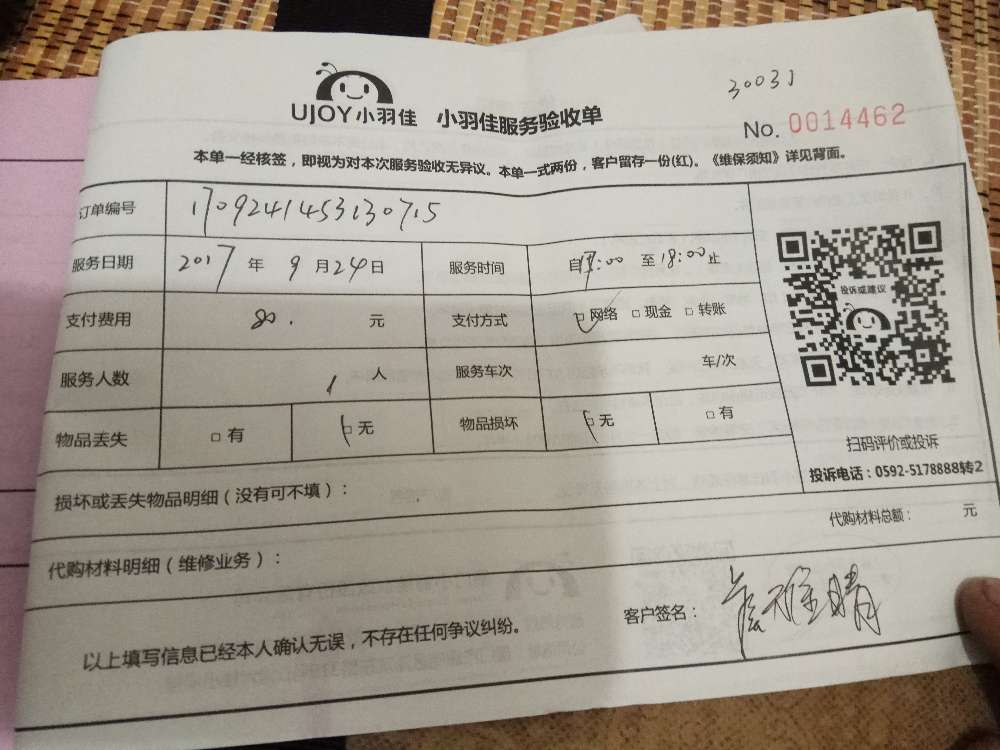 30031
UJOY小羽佳 小羽佳服务验收单
No. 0014462
本单一经核签，即视为对本次服务验收无异议。本单一式两份，客户留存一份(红)。《维保须知》详见背面。
订单编号 1709241453130715
服务日期 2017 年 9 月 24 日 服务时间 自 :00 至 18:00 止
投诉或建议
支付费用 80. 元 支付方式 □网络 □现金 □转账
服务人数 1 人 服务车次 车/次
物品丢失 □有 □无 物品损坏 □无 □有
扫码评价或投诉
投诉电话：0592-5178888转2
损坏或丢失物品明细（没有可不填）：
代购材料总额： 元
代购材料明细（维修业务）：
以上填写信息已经本人确认无误，不存在任何争议纠纷。 客户签名：